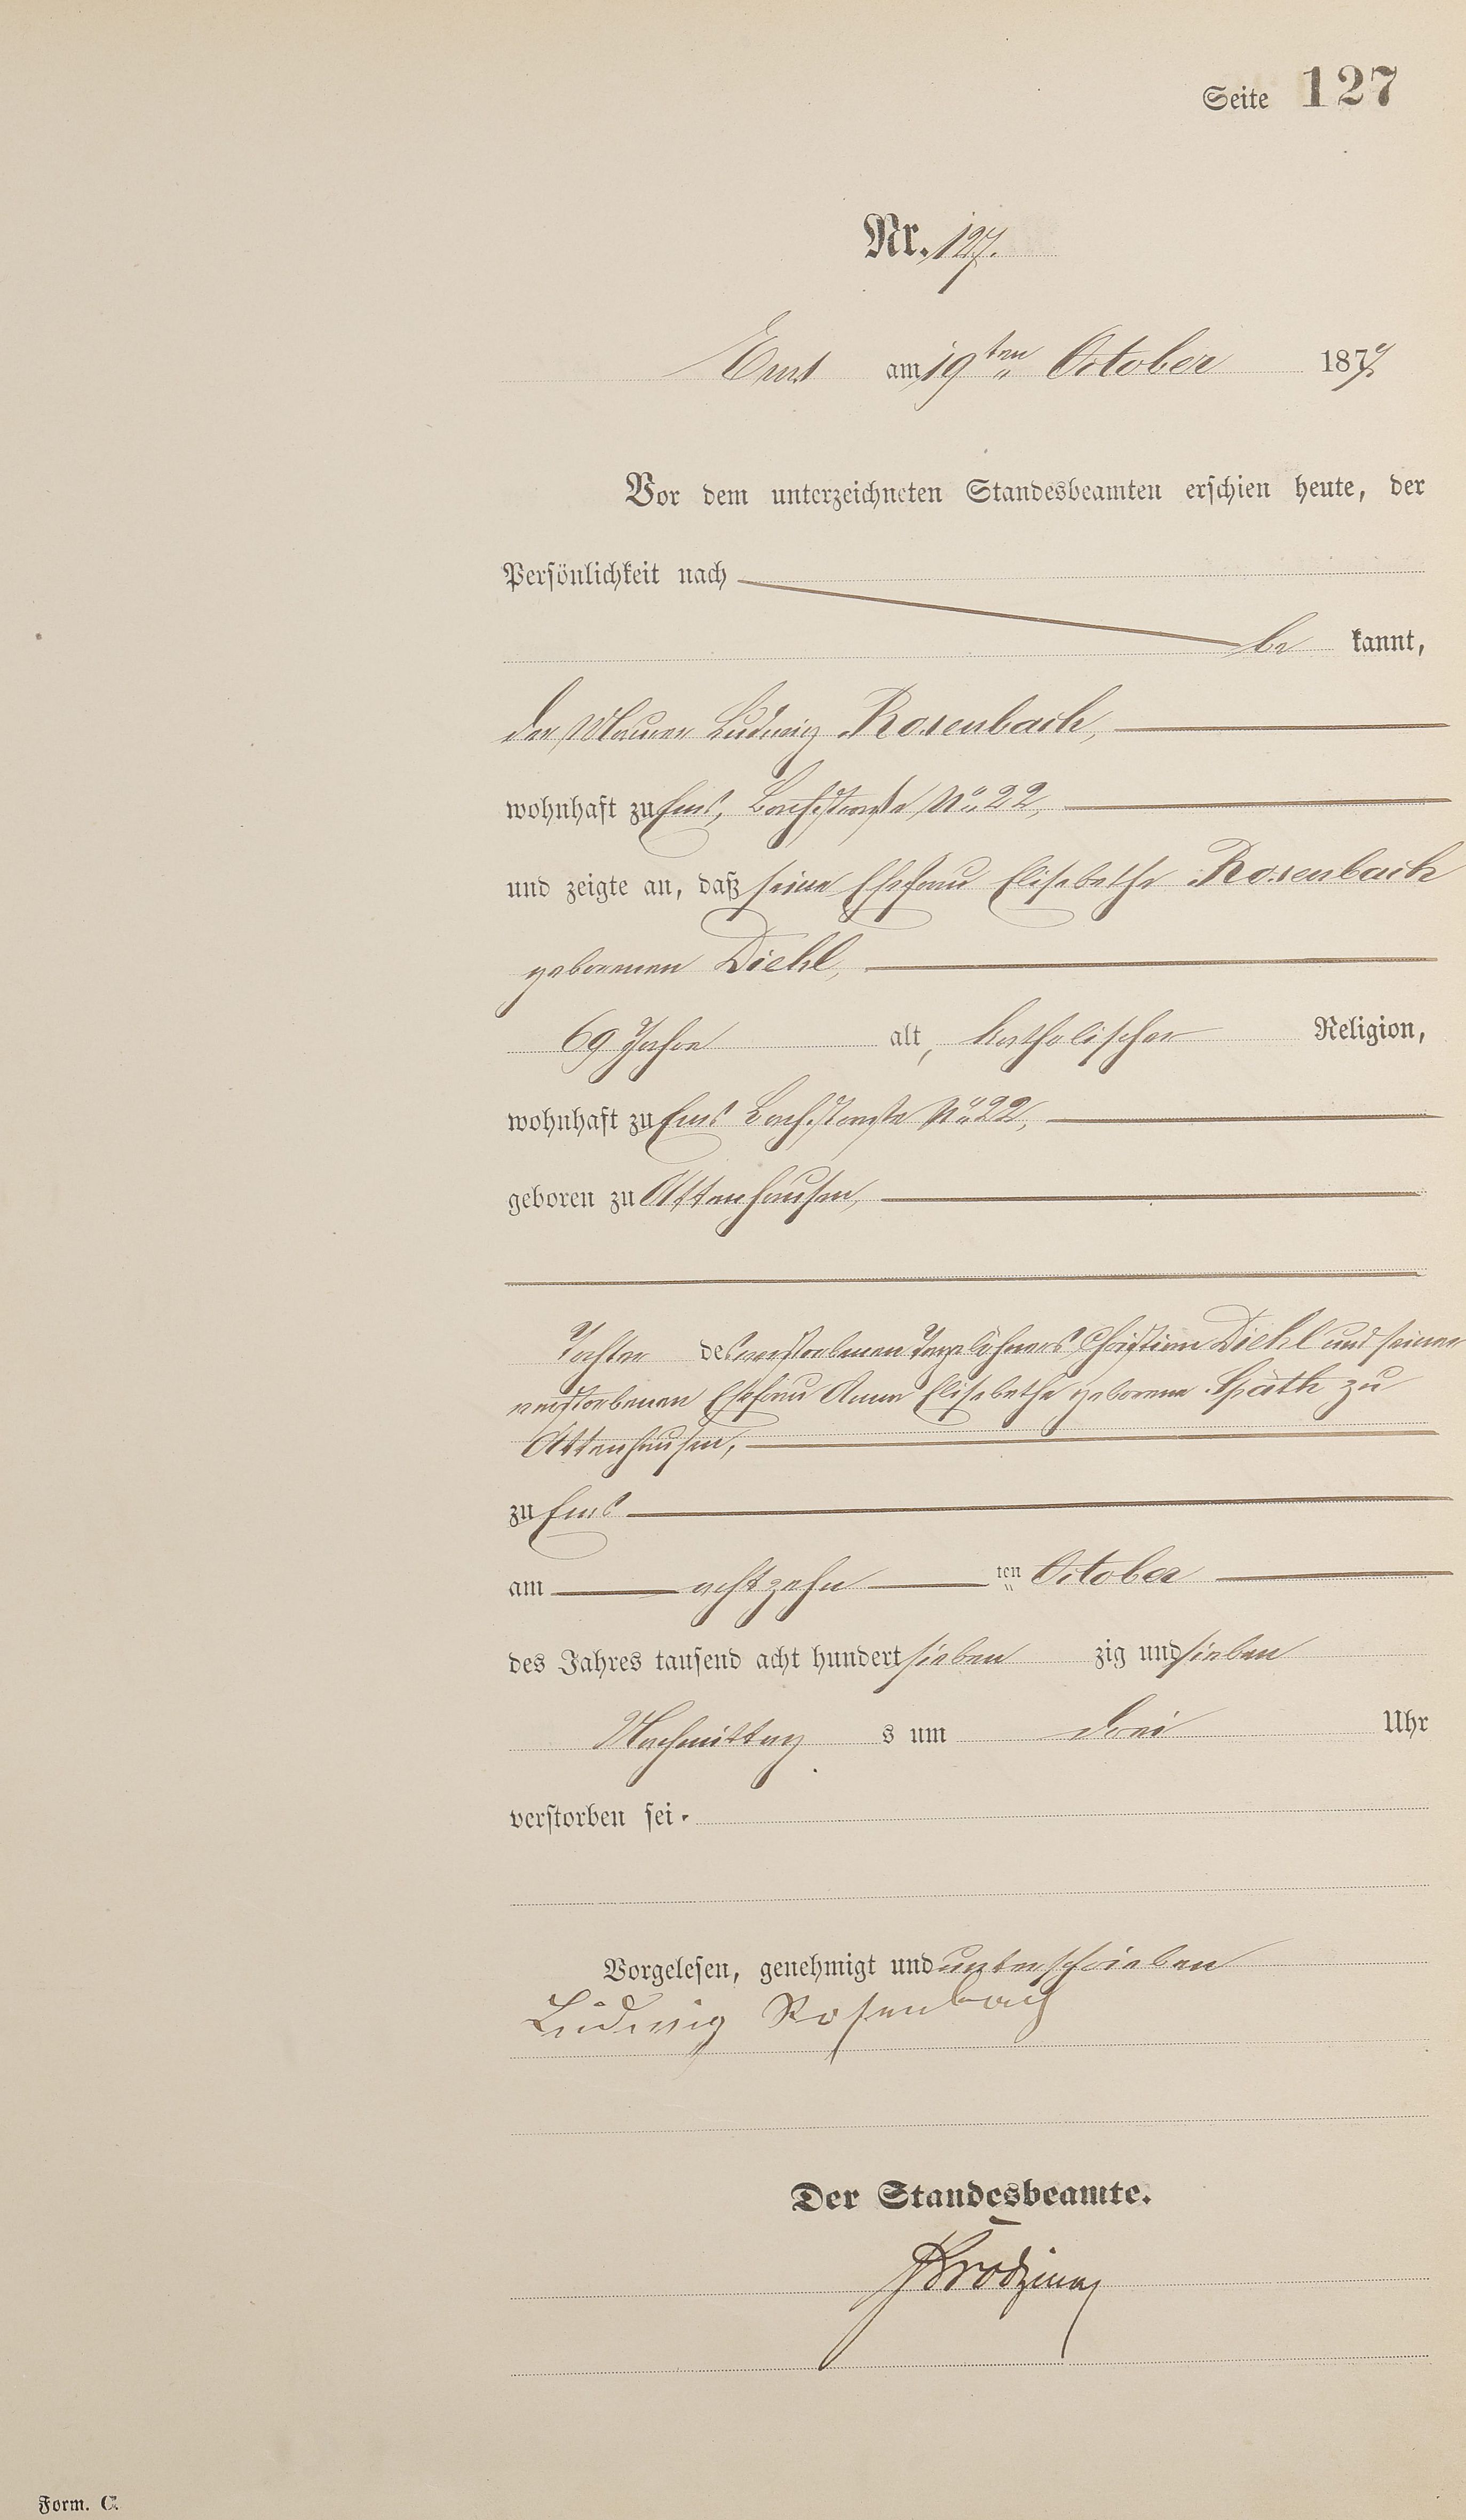 Seite 127
Nr. 127.
Ems am 19ten October 1877.
Vor dem unterzeichneten Standesbeamten erschien heute, der
Persönlichkeit nach
be kannt,
der Maurer Ludwig Rosenbach,
wohnhaft zu Ems, Bachstraße No. 22,
und zeigte an, daß seine Ehefrau Elisabethe Rosenbach
geborenen Diehl,
69 Jahre alt, katholischer Religion,
wohnhaft zu Ems Bachstraße No. 22,
geboren zu Attenhausen,
Tochter des verstorbenen Tagelöhners Christian Diehl und seiner
verstorbenen Ehefrau Anna Elisabethe geborene Späth zu
Attenhausen,
zu Ems
am achtzehn ten October
des Jahres tausend acht hundert sieben zig und sieben
Nachmittag s um drei Uhr
verstorben sei.
Vorgelesen, genehmigt und unterschrieben
Ludwig Rosenbach
Der Standesbeamte.
Form. C.